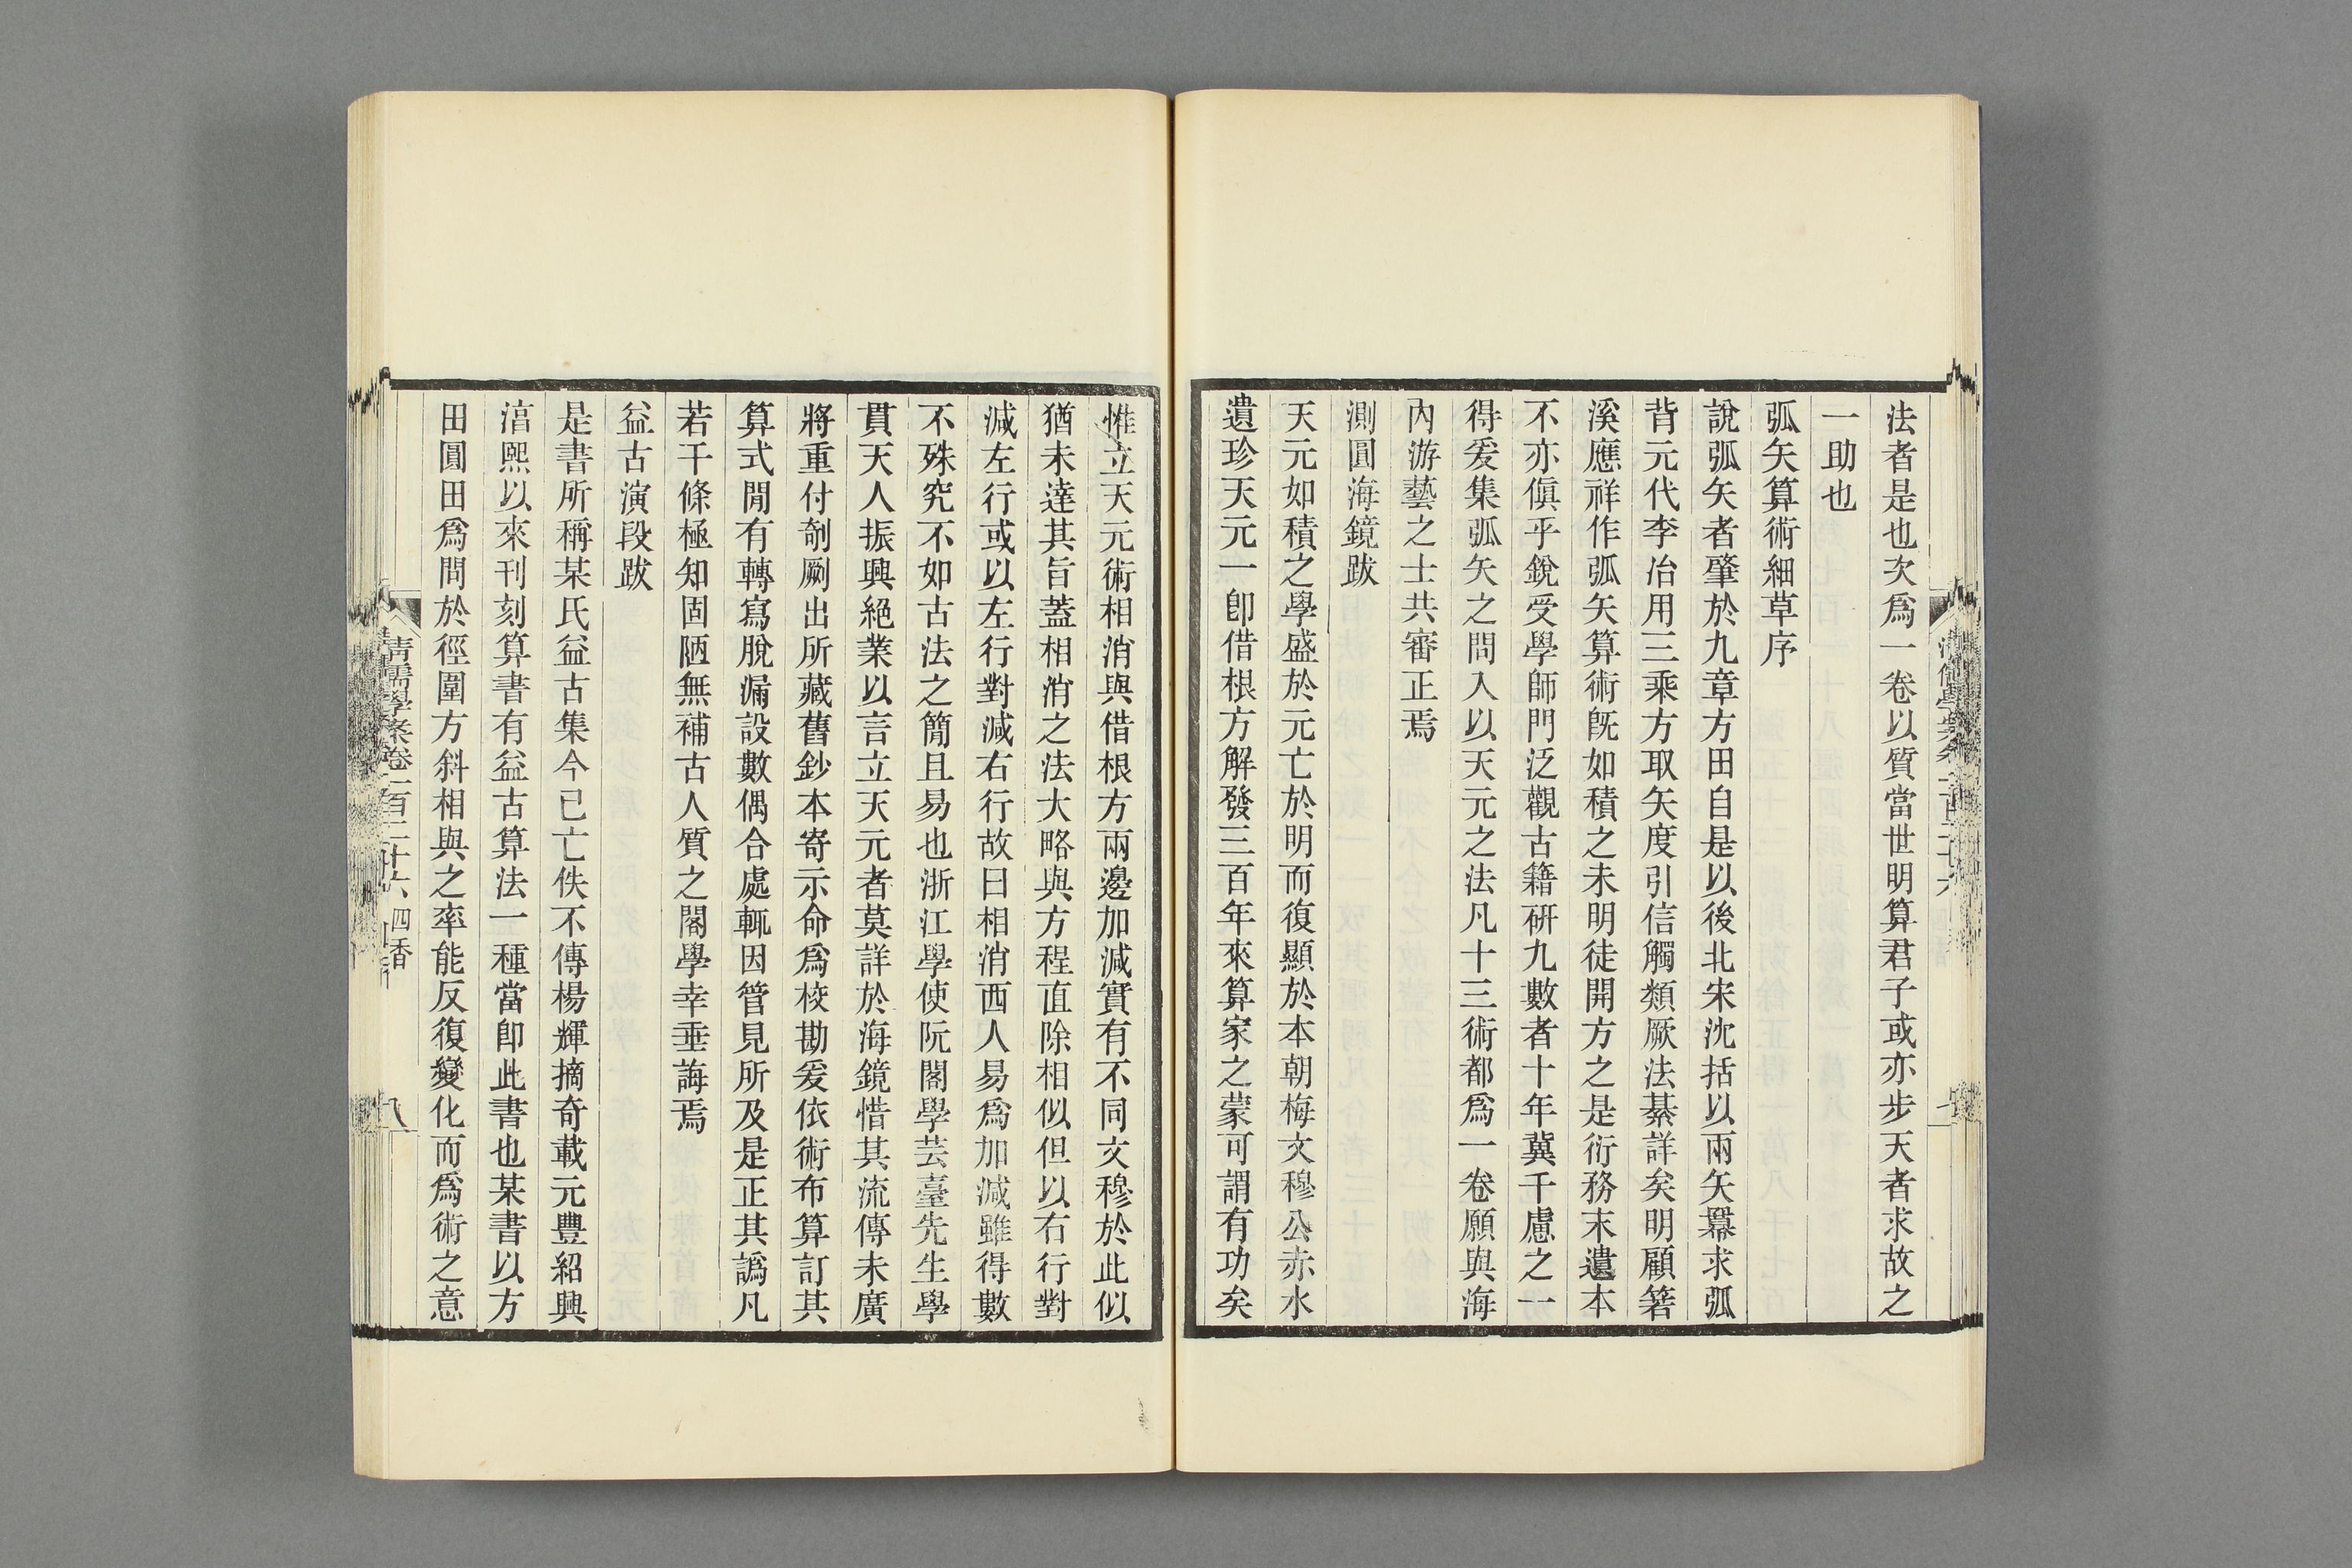 法者是也次爲一卷以質當世明算君子或亦步天者求故之
一助也
弧矢算術細草序
說弧矢者肇於九章方田自是以後北宋沈括以兩矢冪求弧
背元代李冶用三乘方取矢度引信觸類厥法綦詳矣明顧箬
溪應祥作弧矢算術旣如積之未明徒開方之是衍務末遺本
不亦傎乎銳受學師門泛觀古籍硏九數者十年冀千慮之一
得爰集弧矢之問入以天元之法凡十三術都爲一卷願與海
內游藝之士共審正焉
測圓海鏡跋
天元如積之學盛於元亡於明而復顯於本朝梅文穆公赤水
遺珍天元一卽借根方解發三百年來算家之蒙可謂有功矣
惟立天元術相消與借根方兩邊加減實有不同文穆於此似
猶未達其旨蓋相消之法大略與方程直除相似但以右行對
減左行或以左行對減右行故曰相消西人易爲加減雖得數
不殊究不如古法之簡且易也浙江學使阮閣學芸臺先生學
貫天人振興絕業以言立天元者莫詳於海鏡惜其流傳未廣
將重付剞劂出所藏舊鈔本寄示命爲校勘爰依術布算訂其
算式閒有轉寫脫漏設數偶合處輒因管見所及是正其譌凡
若干條極知固陋無補古人質之閣學幸垂誨焉
益古演段跋
是書所稱某氏益古集今已亡佚不傳楊輝摘奇載元豐紹興
湻熙以來刊刻算書有益古算法一種當卽此書也某書以方
田圓田爲問於徑圍方斜相與之率能反復變化而爲術之意
清儒學案卷一百二十六 四香
八